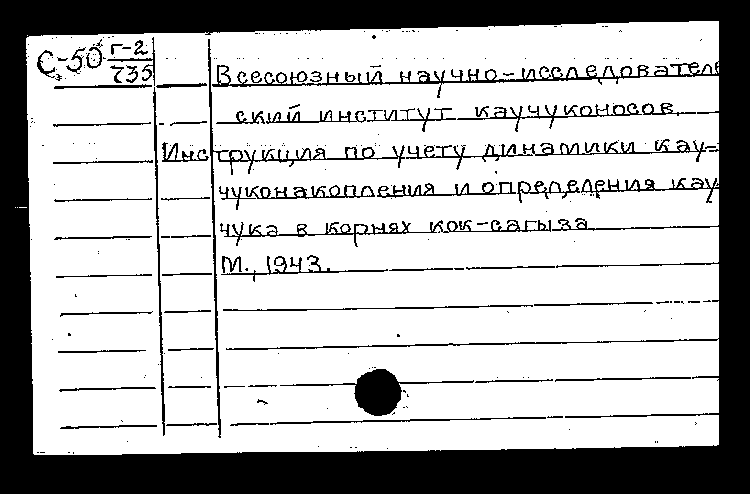 С-50 Г-2
735
Всесоюзный научно-исследователь
ский институт каучуконосов.
Инструкция по учету динамики кау-
чуконакопления и определения кау
чука в корнях кок-сагыза
М., 1943.